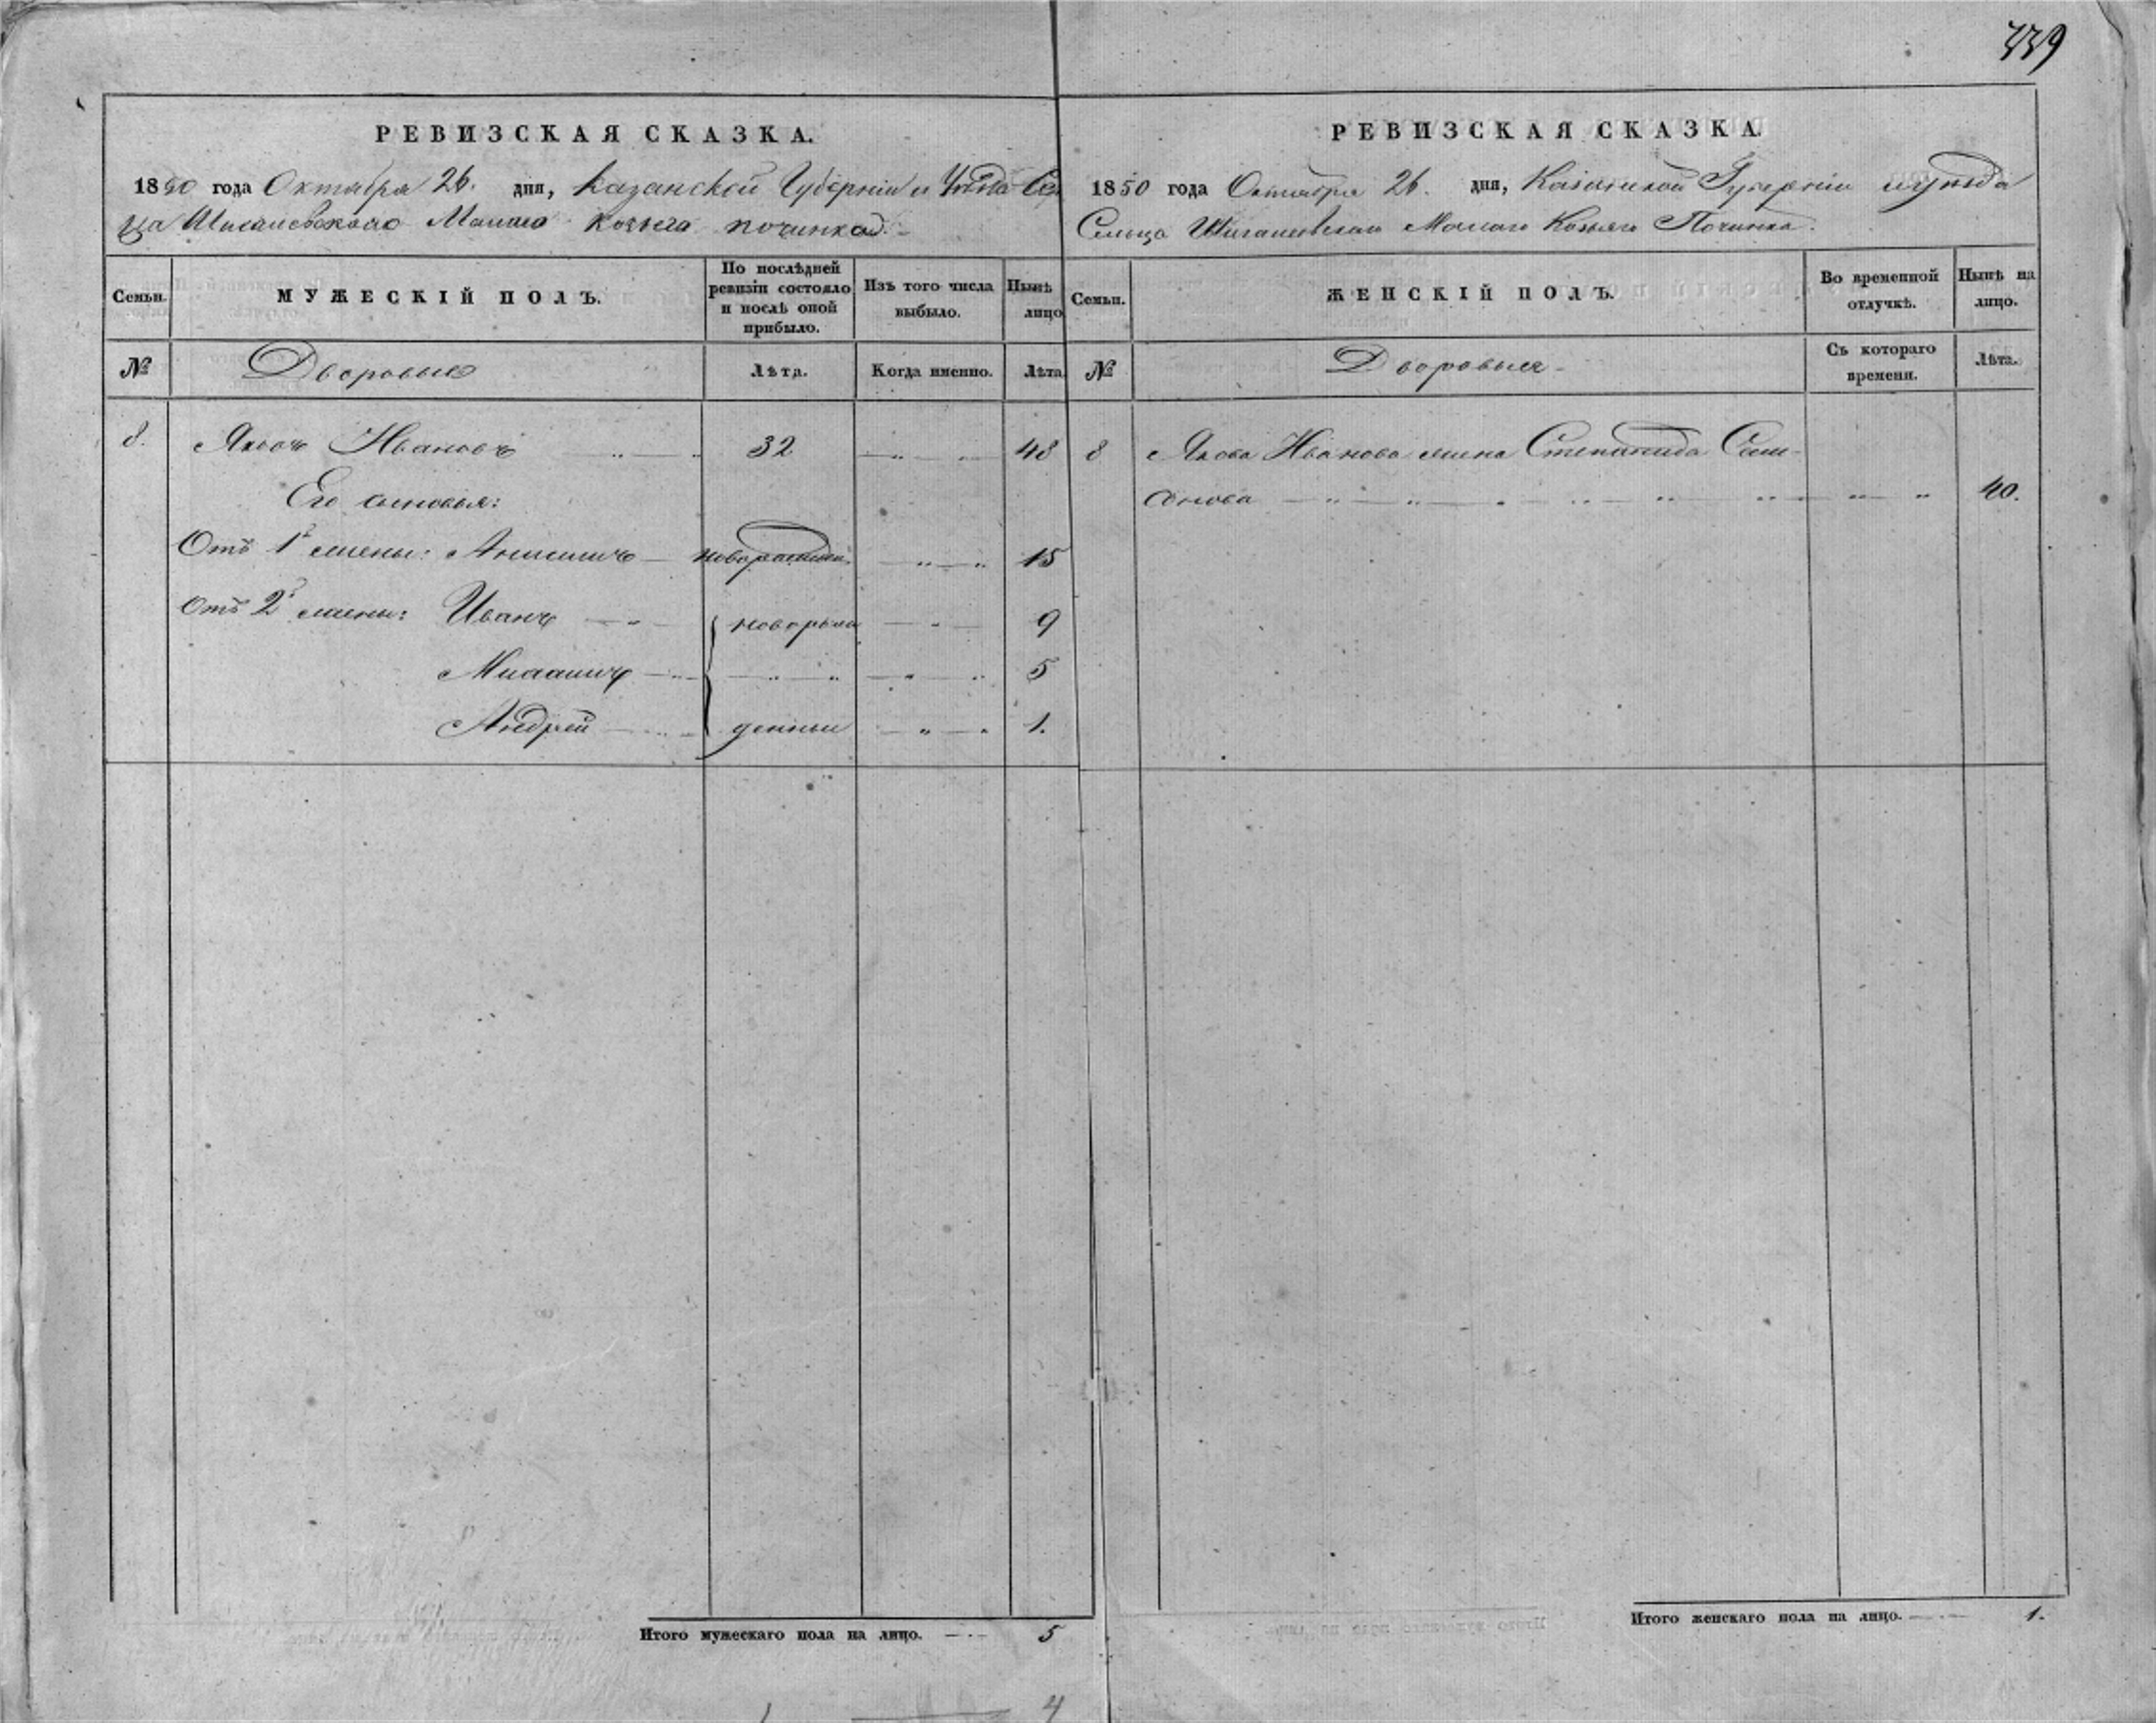 339
РЕВИЗСКАЯ СКАЗКА.
1850 года Октября 26. дня, Казанской Губерніи и Уѣзда Сель
ца Шигалеевскаго Малаго Козьяго починка.
Семьи.
МУЖЕСКІЙ ПОЛЪ.
По послѣдней
ревизіи состояло
и послѣ оной
прибыло.
Изъ того числа
выбыло.
Нынѣ
лицо
№
Дворовые
Лѣта.
Когда именно.
Лѣта
8. Яковъ Ивановъ 32 48
Его сыновья:
Отъ 1й жены: Анисимъ новорожден. 15
Отъ 2й жены: Иванъ новорож 9
5
Андрей денные 1.
Итого мужескаго пола на лицо. 5
4
РЕВИЗСКАЯ СКАЗКА.
1850 года Октября 26. дня, Казанской Губерніи и уѣзда
Сельца Шигалеевскаго Малаго Козьяго Починка.
Семьи.
ЖЕНСКІЙ ПОЛЪ.
Во временной
отлучкѣ.
Нынѣ на
лицо.
№
Дворовые
Съ котораго
времени.
Лѣта.
8 Якова Иванова жена Степанида Сам-
сонова 40.
Итого женскаго пола на лицо. 1.